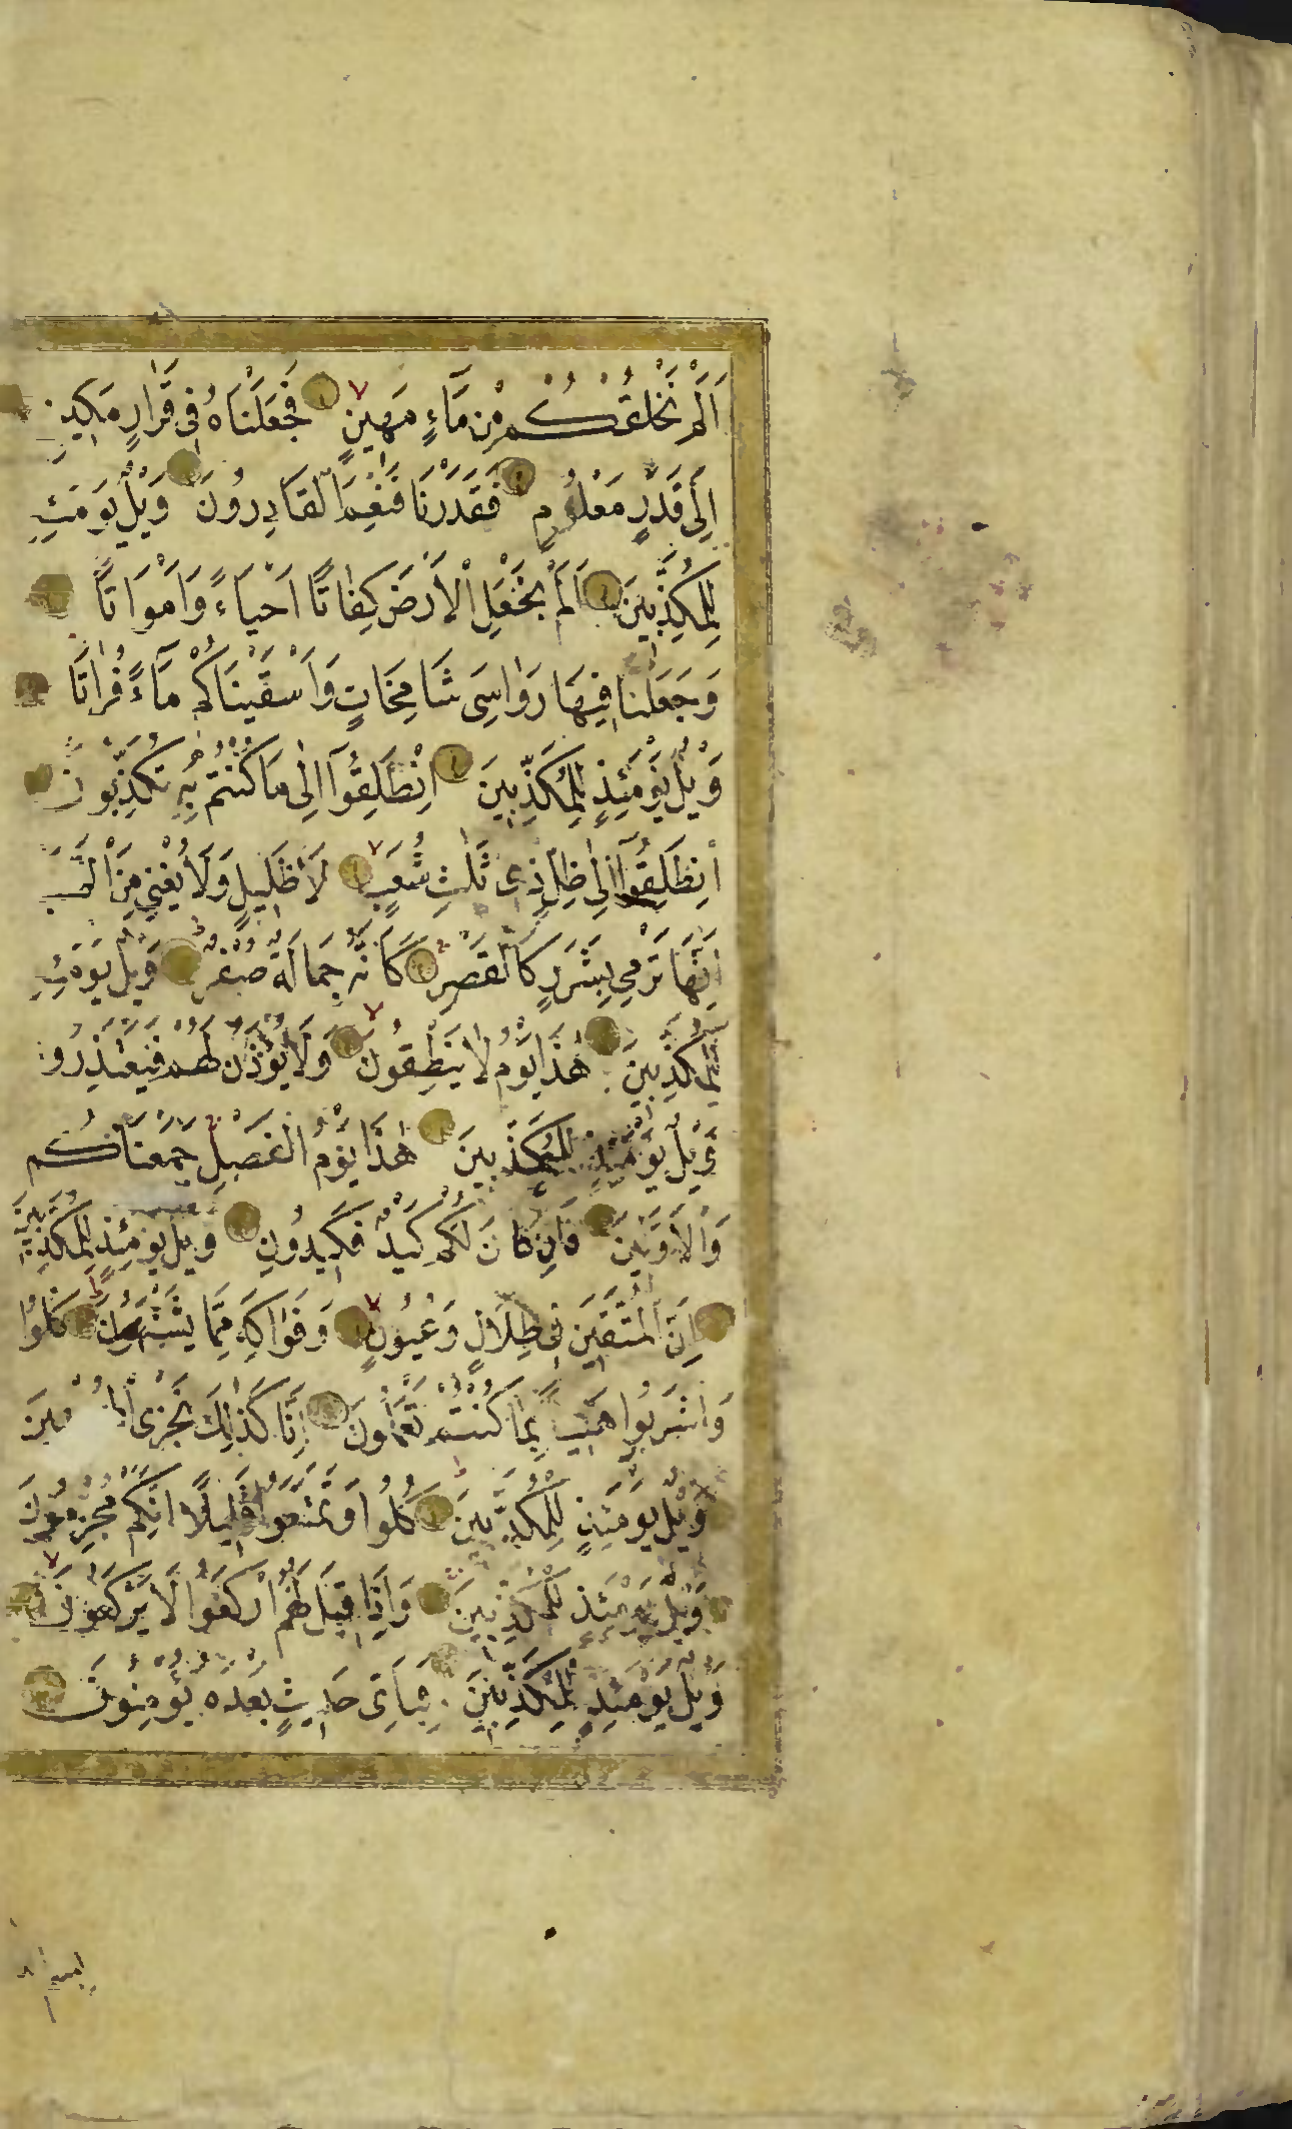 اَلَمْ نَخْلُقْكُمْ مِنْ مَآءٍ مَهِينٍ فَجَعَلْنَاهُ فِى قَرَارٍ مَكِينٍ
اِلٰى قَدَرٍ مَعْلُومٍ فَقَدَرْنَا فَنِعْمَ الْقَادِرُونَ وَيْلٌ يَوْمَئِذٍ
لِلْمُكَذِّبِينَ اَلَمْ نَجْعَلِ الْاَرْضَ كِفَاتًا اَحْيَاءً وَاَمْوَاتًا
وَجَعَلْنَا فِيهَا رَوَاسِىَ شَامِخَاتٍ وَاَسْقَيْنَاكُمْ مَآءً فُرَاتًا
وَيْلٌ يَوْمَئِذٍ لِلْمُكَذِّبِينَ اِنْطَلِقُوٓا اِلٰى مَا كُنْتُمْ بِهِ تُكَذِّبُونَ
اِنْطَلِقُوٓا اِلٰى ظِلٍّ ذِى ثَلٰثِ شُعَبٍ لَا ظَلِيلٍ وَلَا يُغْنِى مِنَ اللَّهَبِ
اِنَّهَا تَرْمِى بِشَرَرٍ كَالْقَصْرِ كَاَنَّهُ جِمَالَةٌ صُفْرٌ وَيْلٌ يَوْمَئِذٍ
لِلْمُكَذِّبِينَ هٰذَا يَوْمُ لَا يَنْطِقُونَ وَلَا يُؤْذَنُ لَهُمْ فَيَعْتَذِرُونَ
وَيْلٌ يَوْمَئِذٍ لِلْمُكَذِّبِينَ هٰذَا يَوْمُ الْفَصْلِ جَمَعْنَاكُمْ
وَالْاَوَّلِينَ فَاِنْ كَانَ لَكُمْ كَيْدٌ فَكِيدُونِ وَيْلٌ يَوْمَئِذٍ لِلْمُكَذِّبِينَ
اِنَّ الْمُتَّقِينَ فِى ظِلَالٍ وَعُيُونٍ وَفَوَاكِهَ مِمَّا يَشْتَهُونَ كُلُوا
وَاشْرَبُوا هَنِيٓـًٔا بِمَا كُنْتُمْ تَعْمَلُونَ اِنَّا كَذٰلِكَ نَجْزِى
وَيْلٌ يَوْمَئِذٍ لِلْمُكَذِّبِينَ كُلُوا وَتَمَتَّعُوا قَلِيلًا اِنَّكُمْ مُجْرِمُونَ
وَيْلٌ يَوْمَئِذٍ لِلْمُكَذِّبِينَ وَاِذَا قِيلَ لَهُمُ ارْكَعُوا لَا يَرْكَعُونَ
وَيْلٌ يَوْمَئِذٍ لِلْمُكَذِّبِينَ فَبِاَىِّ حَدِيثٍ بَعْدَهُ يُؤْمِنُونَ